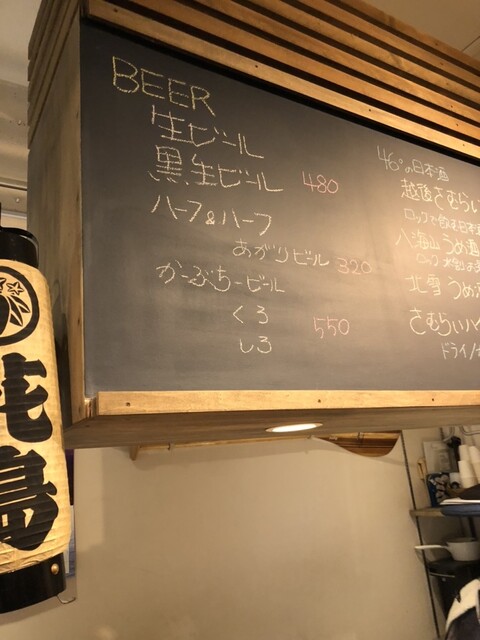 BEER
生ビール
黒生ビール 480
ハーフ&ハーフ
あがりビール 320
かーぶちービール
くろ
550
しろ
46°の日本酒
越後さむらい
ロックで飲む日本酒
八海山うめ酒
北雪 うめ酒
さむらいハイ
ドライ/
島